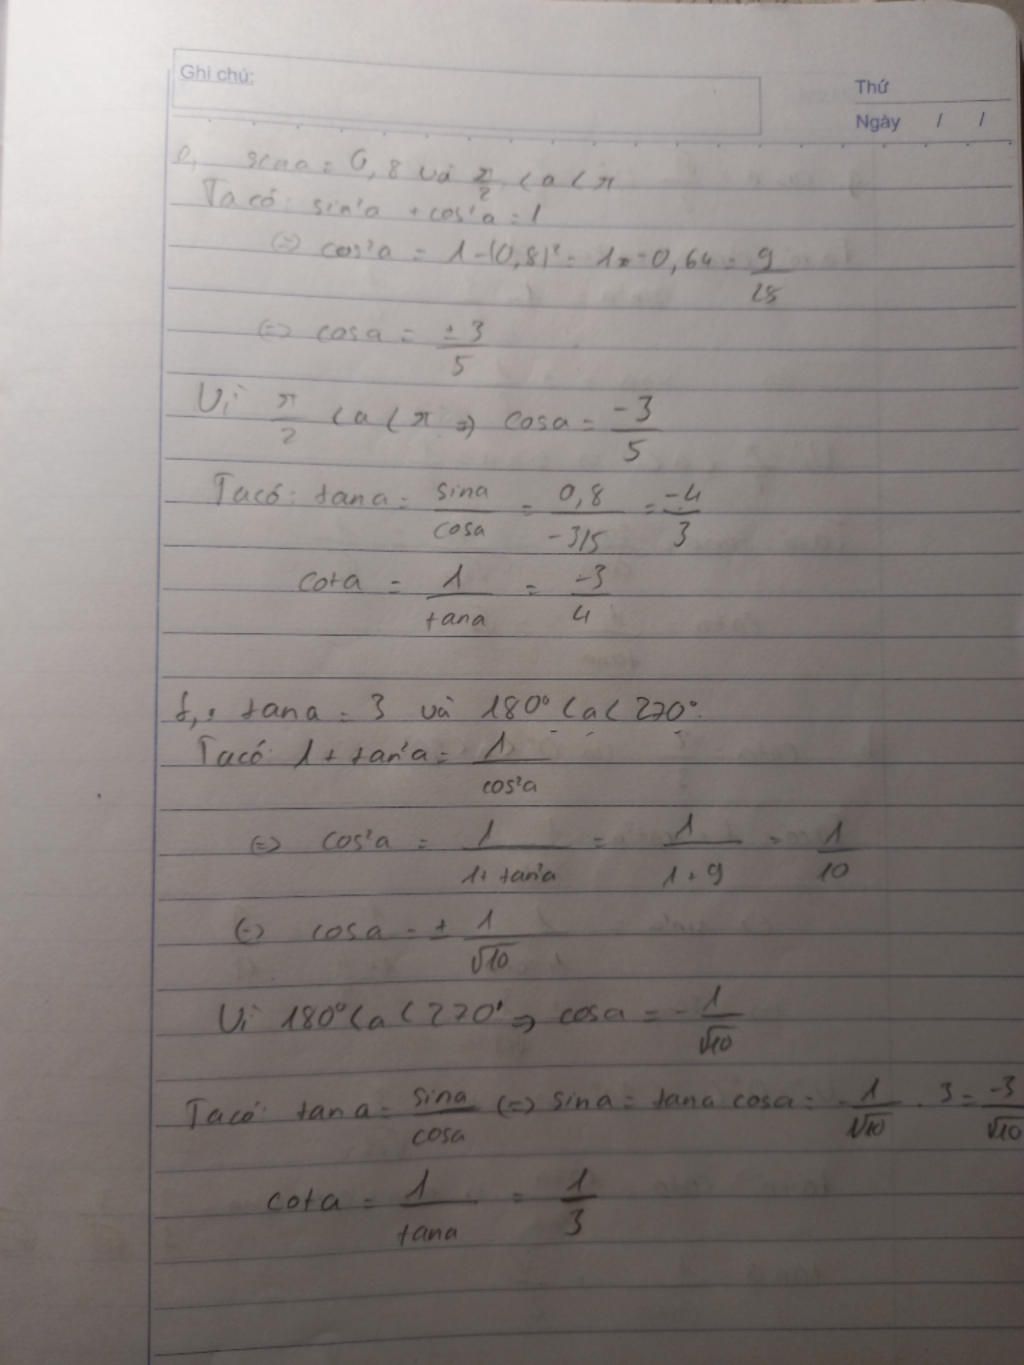 Ghi chú:
Thứ
Ngày / /
e, sina = 0,8 và π/2 < a < π
Ta có: sin²a + cos²a = 1
(=) cos²a = 1 - (0,8)² = 1 - 0,64 = 9/25
(=) cosa = ±3/5
Vì π/2 < a < π => cosa = -3/5
Ta có: tana = sina/cosa = 0,8/-3/5 = -4/3
cota = 1/tana = -3/4
f, tana = 3 và 180° < a < 270°
Ta có 1 + tan²a = 1/cos²a
(=) cos²a = 1/1+tan²a = 1/1+9 = 1/10
(=) cosa = ± 1/√10
Vì 180° < a < 270° => cosa = - 1/√10
Ta có: tana = sina/cosa (=) sina = tana cosa = - 1/√10 . 3 = -3/√10
cota = 1/tana = 1/3